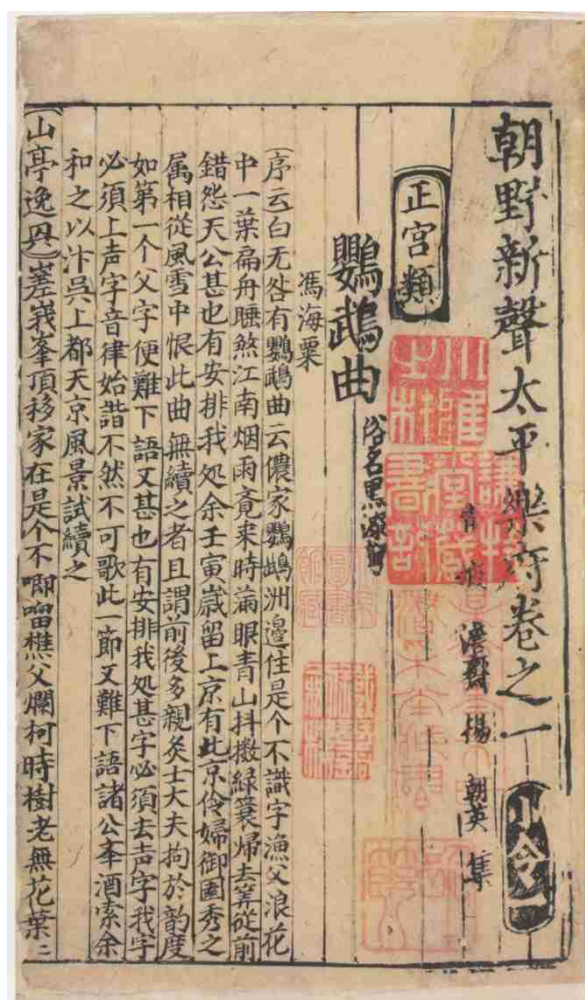 朝野新聲太平樂府卷之一 小令一
青城 澹齋 楊朝英 集
正宮類
鸚鵡曲 俗名黑漆弩
馮海粟
(序云白无咎有鸚鵡曲云儂家鸚鵡洲邊住是个不識字漁父浪花
中一葉扁舟睡煞江南烟雨覔来時滿眼青山抖擻綠簑歸去筭從前
錯怨天公甚也有安排我処余壬寅歲留上京有北京伶婦御園秀之
属相從風雪中恨此曲無續之者且謂前後多親炙士大夫拘於韵度
如第一个父字便難下語又甚也有安排我処甚字必須去声字我字
必須上声字音律始諧不然不可歌此一節又難下語諸公举酒索余
和之以汴吳上都天京風景試續之
(山亭逸興)嵳峩峯頂移家在是个不唧嚠樵父爛柯時樹老無花葉〻